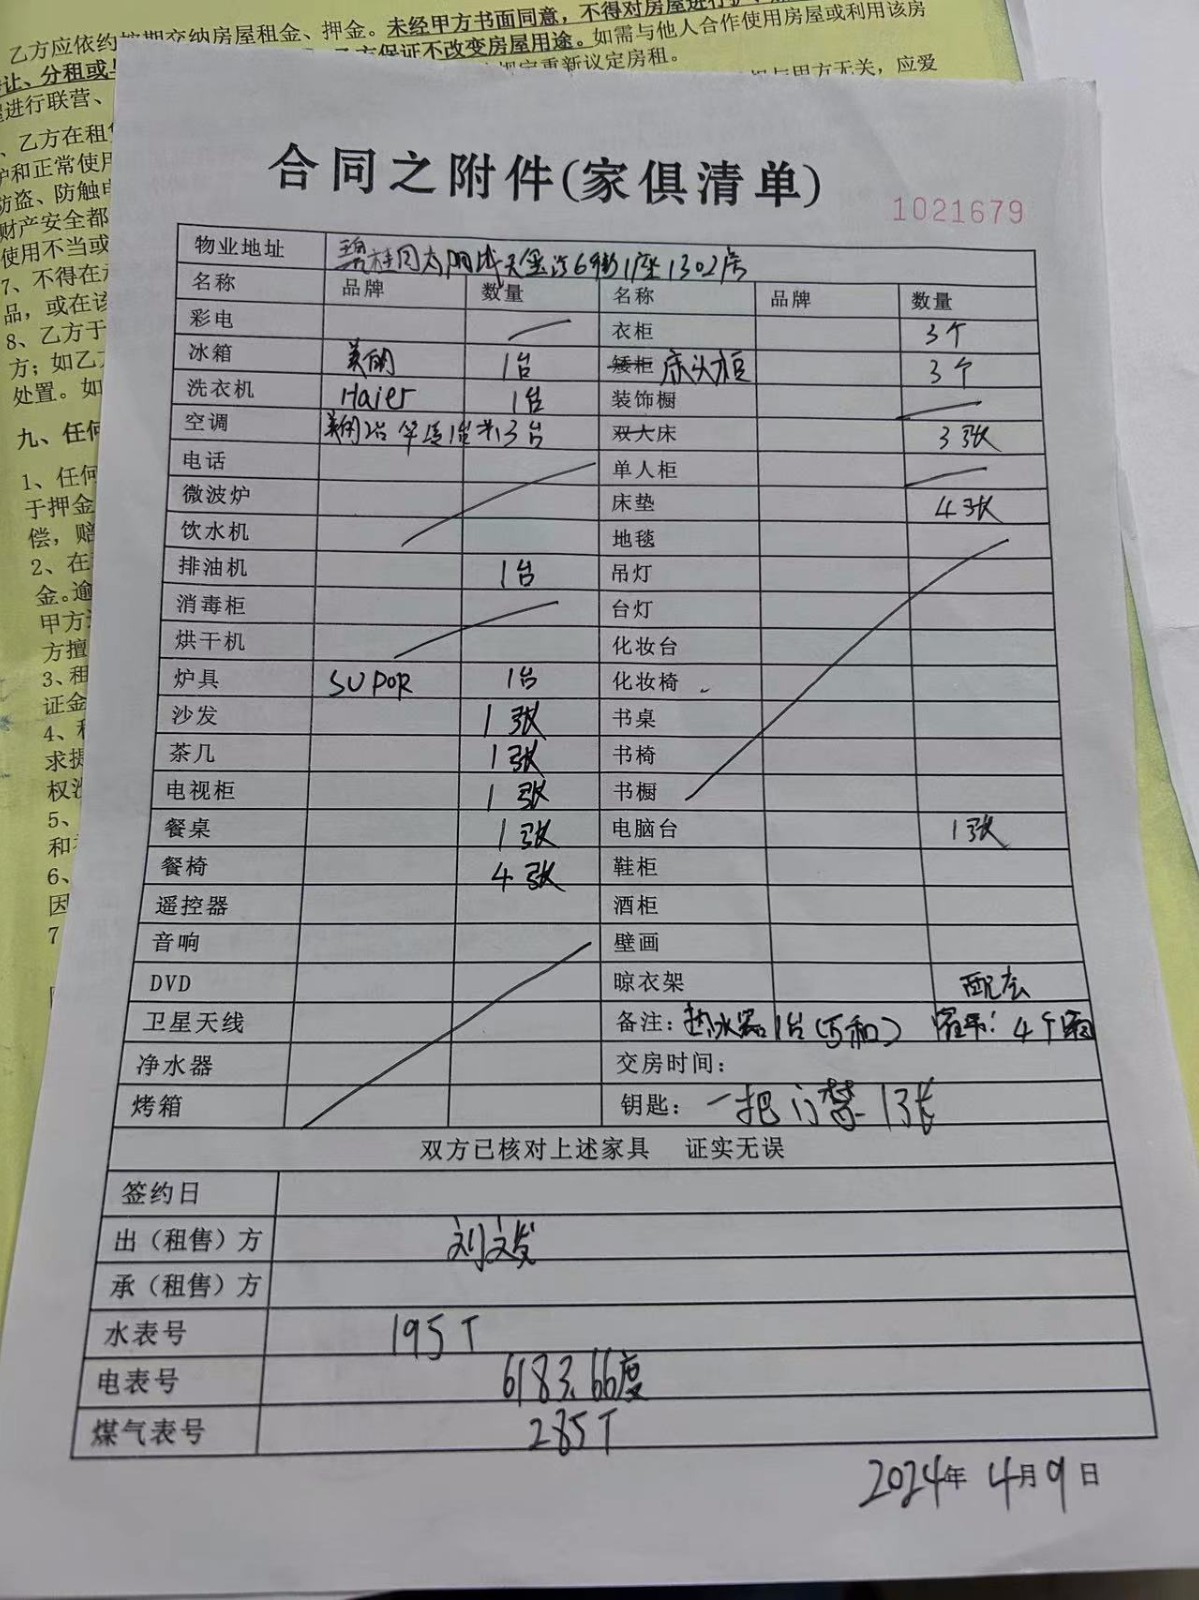 乙方应依约按期交纳房屋租金、押金。未经甲方书面同意，不得对房屋进行
让、分租或 乙方保证不改变房屋用途。如需与他人合作使用房屋或利用该房
进行联营、 重新议定房租。
与甲方无关，应爱
、乙方在租
护和正常使用
防盗、防触电
财产安全都
使用不当或
7、不得在
品，或在该
8、乙方于
方；如乙
处置。如
九、任何
1、任何
于押金
偿，赔
2、在
金。逾
甲方
方擅
3、租
证金
4、
求提
权
5、
和
6、
因
7
合同之附件(家俱清单)
1021679
物业地址 碧桂园太阳城天玺湾6街1座1302房
名称 品牌 数量 名称 品牌 数量
彩电 衣柜 3个
冰箱 美的 1台 矮柜 床头柜 3个
洗衣机 Haier 1台 装饰橱
空调 美的2台 华凌1台 共3台 双大床 3张
电话 单人柜
微波炉 床垫 4张
饮水机 地毯
排油机 1台 吊灯
消毒柜 台灯
烘干机 化妆台
炉具 SUPOR 1台 化妆椅
沙发 1张 书桌
茶几 1张 书椅
电视柜 1张 书橱
餐桌 1张 电脑台 1张
餐椅 4张 鞋柜
遥控器 酒柜
音响 壁画
DVD 晾衣架 配套
卫星天线 备注：热水器1台(万和) 窗帘：4个窗
净水器 交房时间：
烤箱 钥匙：一把 门禁 1张
双方已核对上述家具 证实无误
签约日
出（租售）方 刘文发
承（租售）方
水表号 195T
电表号 6183.66度
煤气表号 285T
2024年4月9日